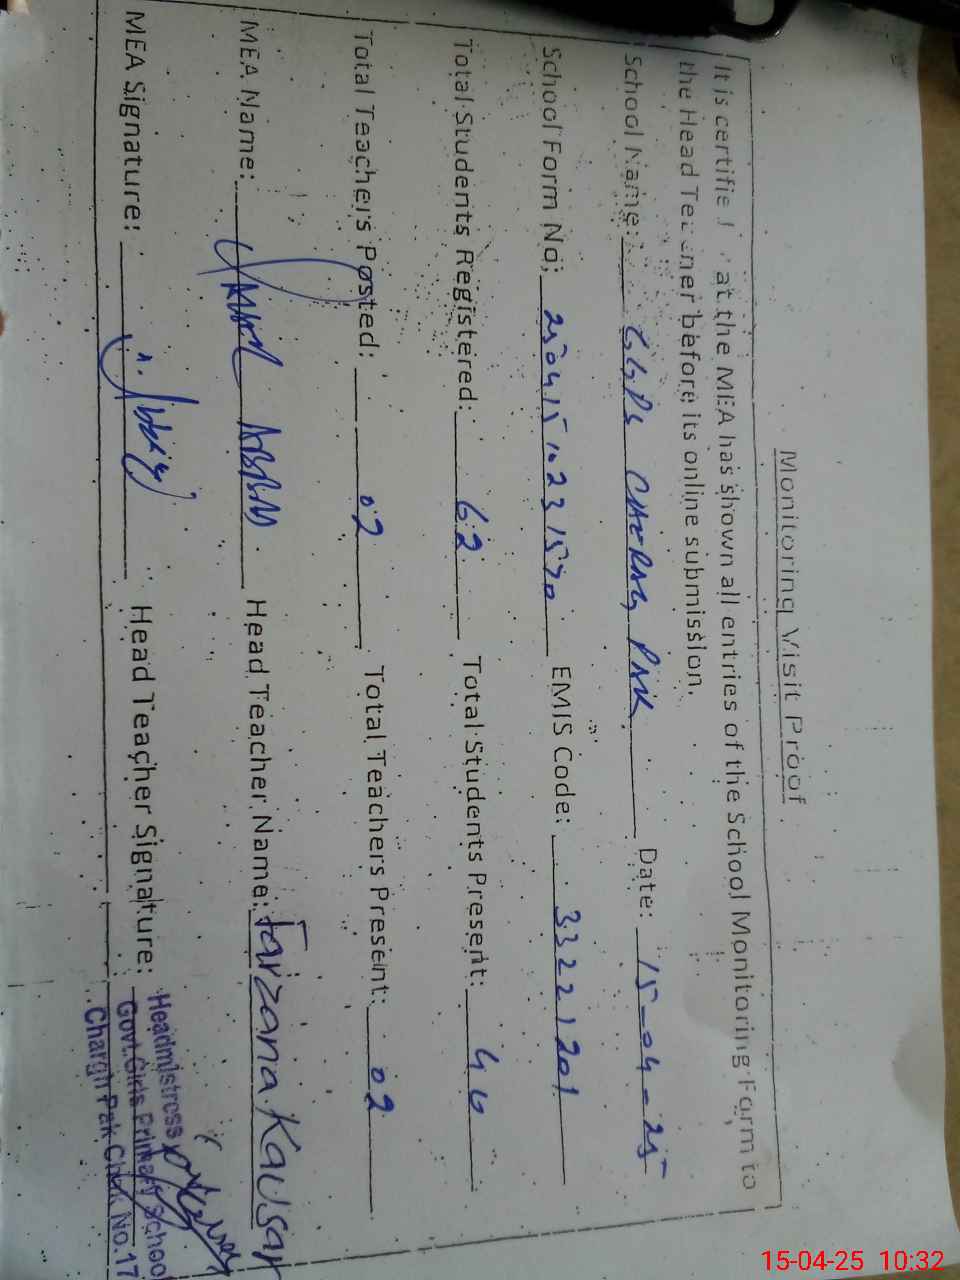 Monitoring Visit Proof
It is certifie at the MEA has shown all entries of the School Monitoring Form to
the Head Teacher before its online submission.
School Name: GGPS CHERAG PAK Date: 15-04-25
School Form No; EMIS Code: 33221201
Total Students Registered: 62 Total Students Present: 46
Total Teachers Posted: 02 Total Teachers Present: 02
MEA Name: Head Teacher Name: Farzana Kausar
MEA Signature: Head Teacher Signature:
Headmistress
Govt. Girls Primary School
Chargh Pak Chak No.17
15-04-25 10:32